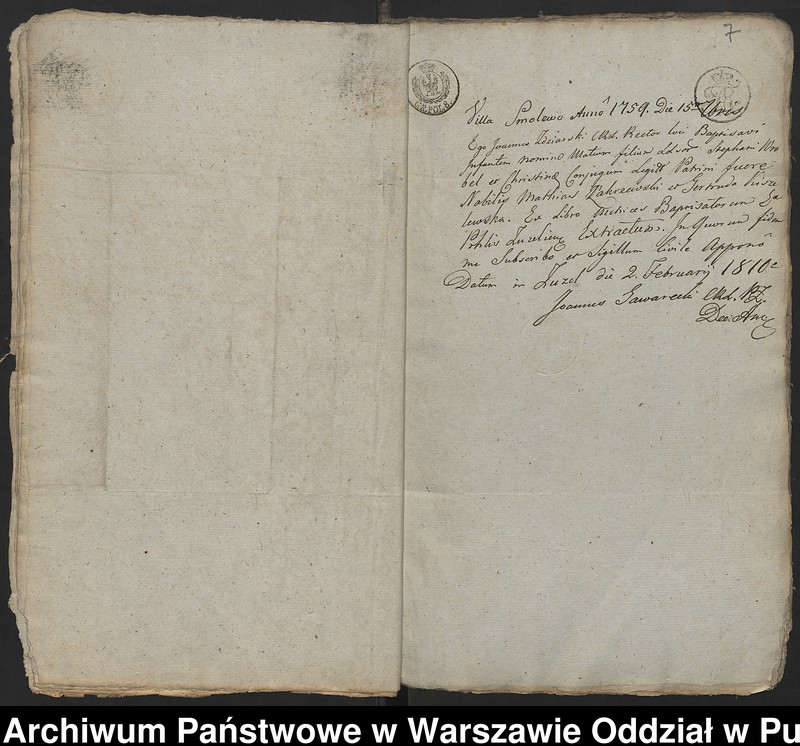 7
GR. POL. 8.
Villa Smolewo Annô 1759. Die 15 7bris
Ego Joannes Zdziarski Md. Rector loci Baptisavi
Infantem nomine Mateum filium Labor Stephani Wro
bel et Christinæ Conjugum Legitt Patrini fuere
Nobilis Mathias Zakrzewski et Gertruda Kisze
lewska. Ex Libro Metrices Baptisatorum Ec
Prhlis Zuzeliens Extractum. In Quorum fidem
me Subscribo et Sigillum Civile Apponô
Datum in Zuzel die 2. Februarij 1810
Joannes Gawarecki Md.
Dec:
Archiwum Państwowe w Warszawie Oddział w Pu